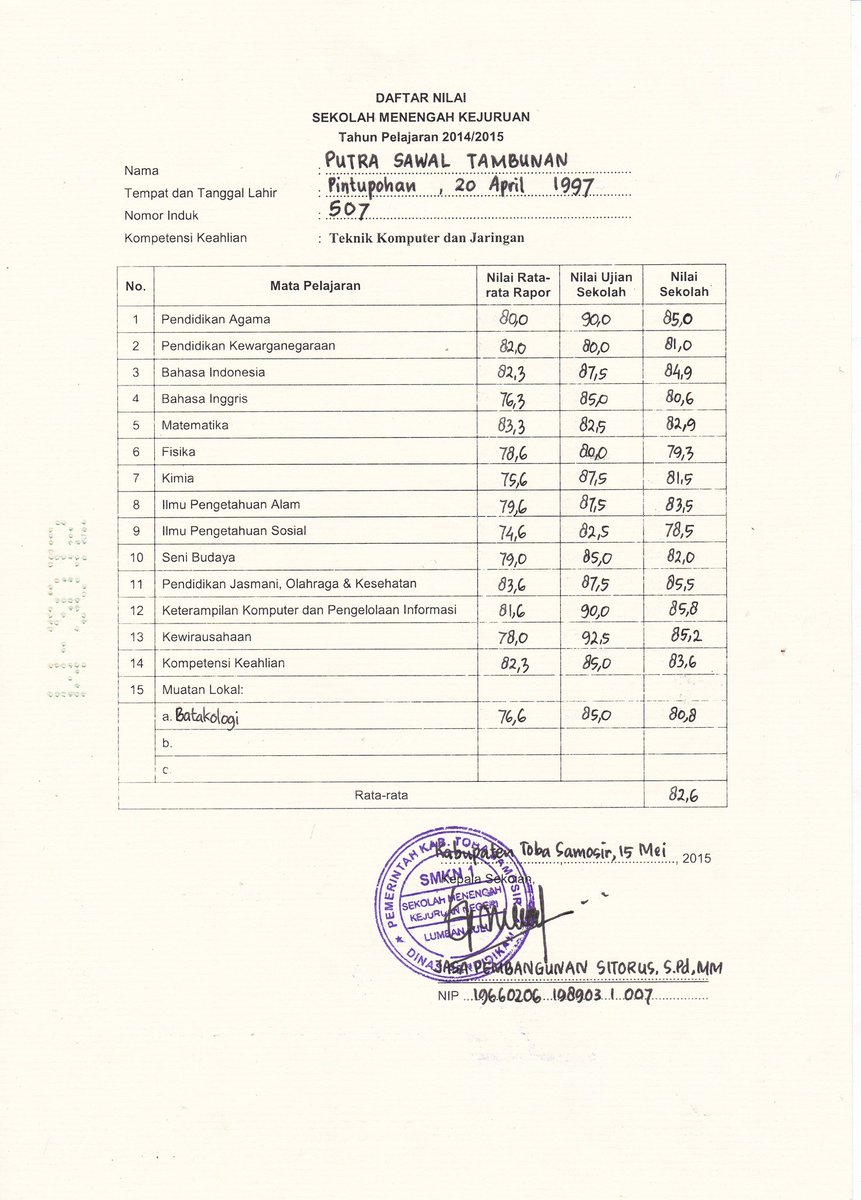 DAFTAR NILAI
SEKOLAH MENENGAH KEJURUAN
Tahun Pelajaran 2014/2015
Nama : PUTRA SAWAL TAMBUNAN
Tempat dan Tanggal Lahir : Pintupohan , 20 April 1997
Nomor Induk : 507
Kompetensi Keahlian : Teknik Komputer dan Jaringan
No. Mata Pelajaran Nilai Rata-rata Rapor Nilai Ujian Sekolah Nilai Sekolah
1 Pendidikan Agama 80,0 90,0 85,0
2 Pendidikan Kewarganegaraan 82,0 80,0 81,0
3 Bahasa Indonesia 82,3 87,5 84,9
4 Bahasa Inggris 76,3 85,0 80,6
5 Matematika 83,3 82,5 82,9
6 Fisika 78,6 80,0 79,3
7 Kimia 75,6 87,5 81,5
8 Ilmu Pengetahuan Alam 79,6 87,5 83,5
9 Ilmu Pengetahuan Sosial 74,6 82,5 78,5
10 Seni Budaya 79,0 85,0 82,0
11 Pendidikan Jasmani, Olahraga & Kesehatan 83,6 87,5 85,5
12 Keterampilan Komputer dan Pengelolaan Informasi 81,6 90,0 85,8
13 Kewirausahaan 78,0 92,5 85,2
14 Kompetensi Keahlian 82,3 85,0 83,6
15 Muatan Lokal:
a. Batakologi 76,6 85,0 80,8
b.
c.
Rata-rata 82,6
Kabupaten Toba Samosir, 15 Mei, 2015
Kepala Sekolah,
PEMERINTAH KAB. TOBA SAMOSIR
SMKN 1
SEKOLAH MENENGAH
KEJURUAN NEGERI
LUMBAN JULU
DINAS PENDIDIKAN
JASA PEMBANGUNAN SITORUS, S.Pd,MM
NIP 19660206 198903 1 007